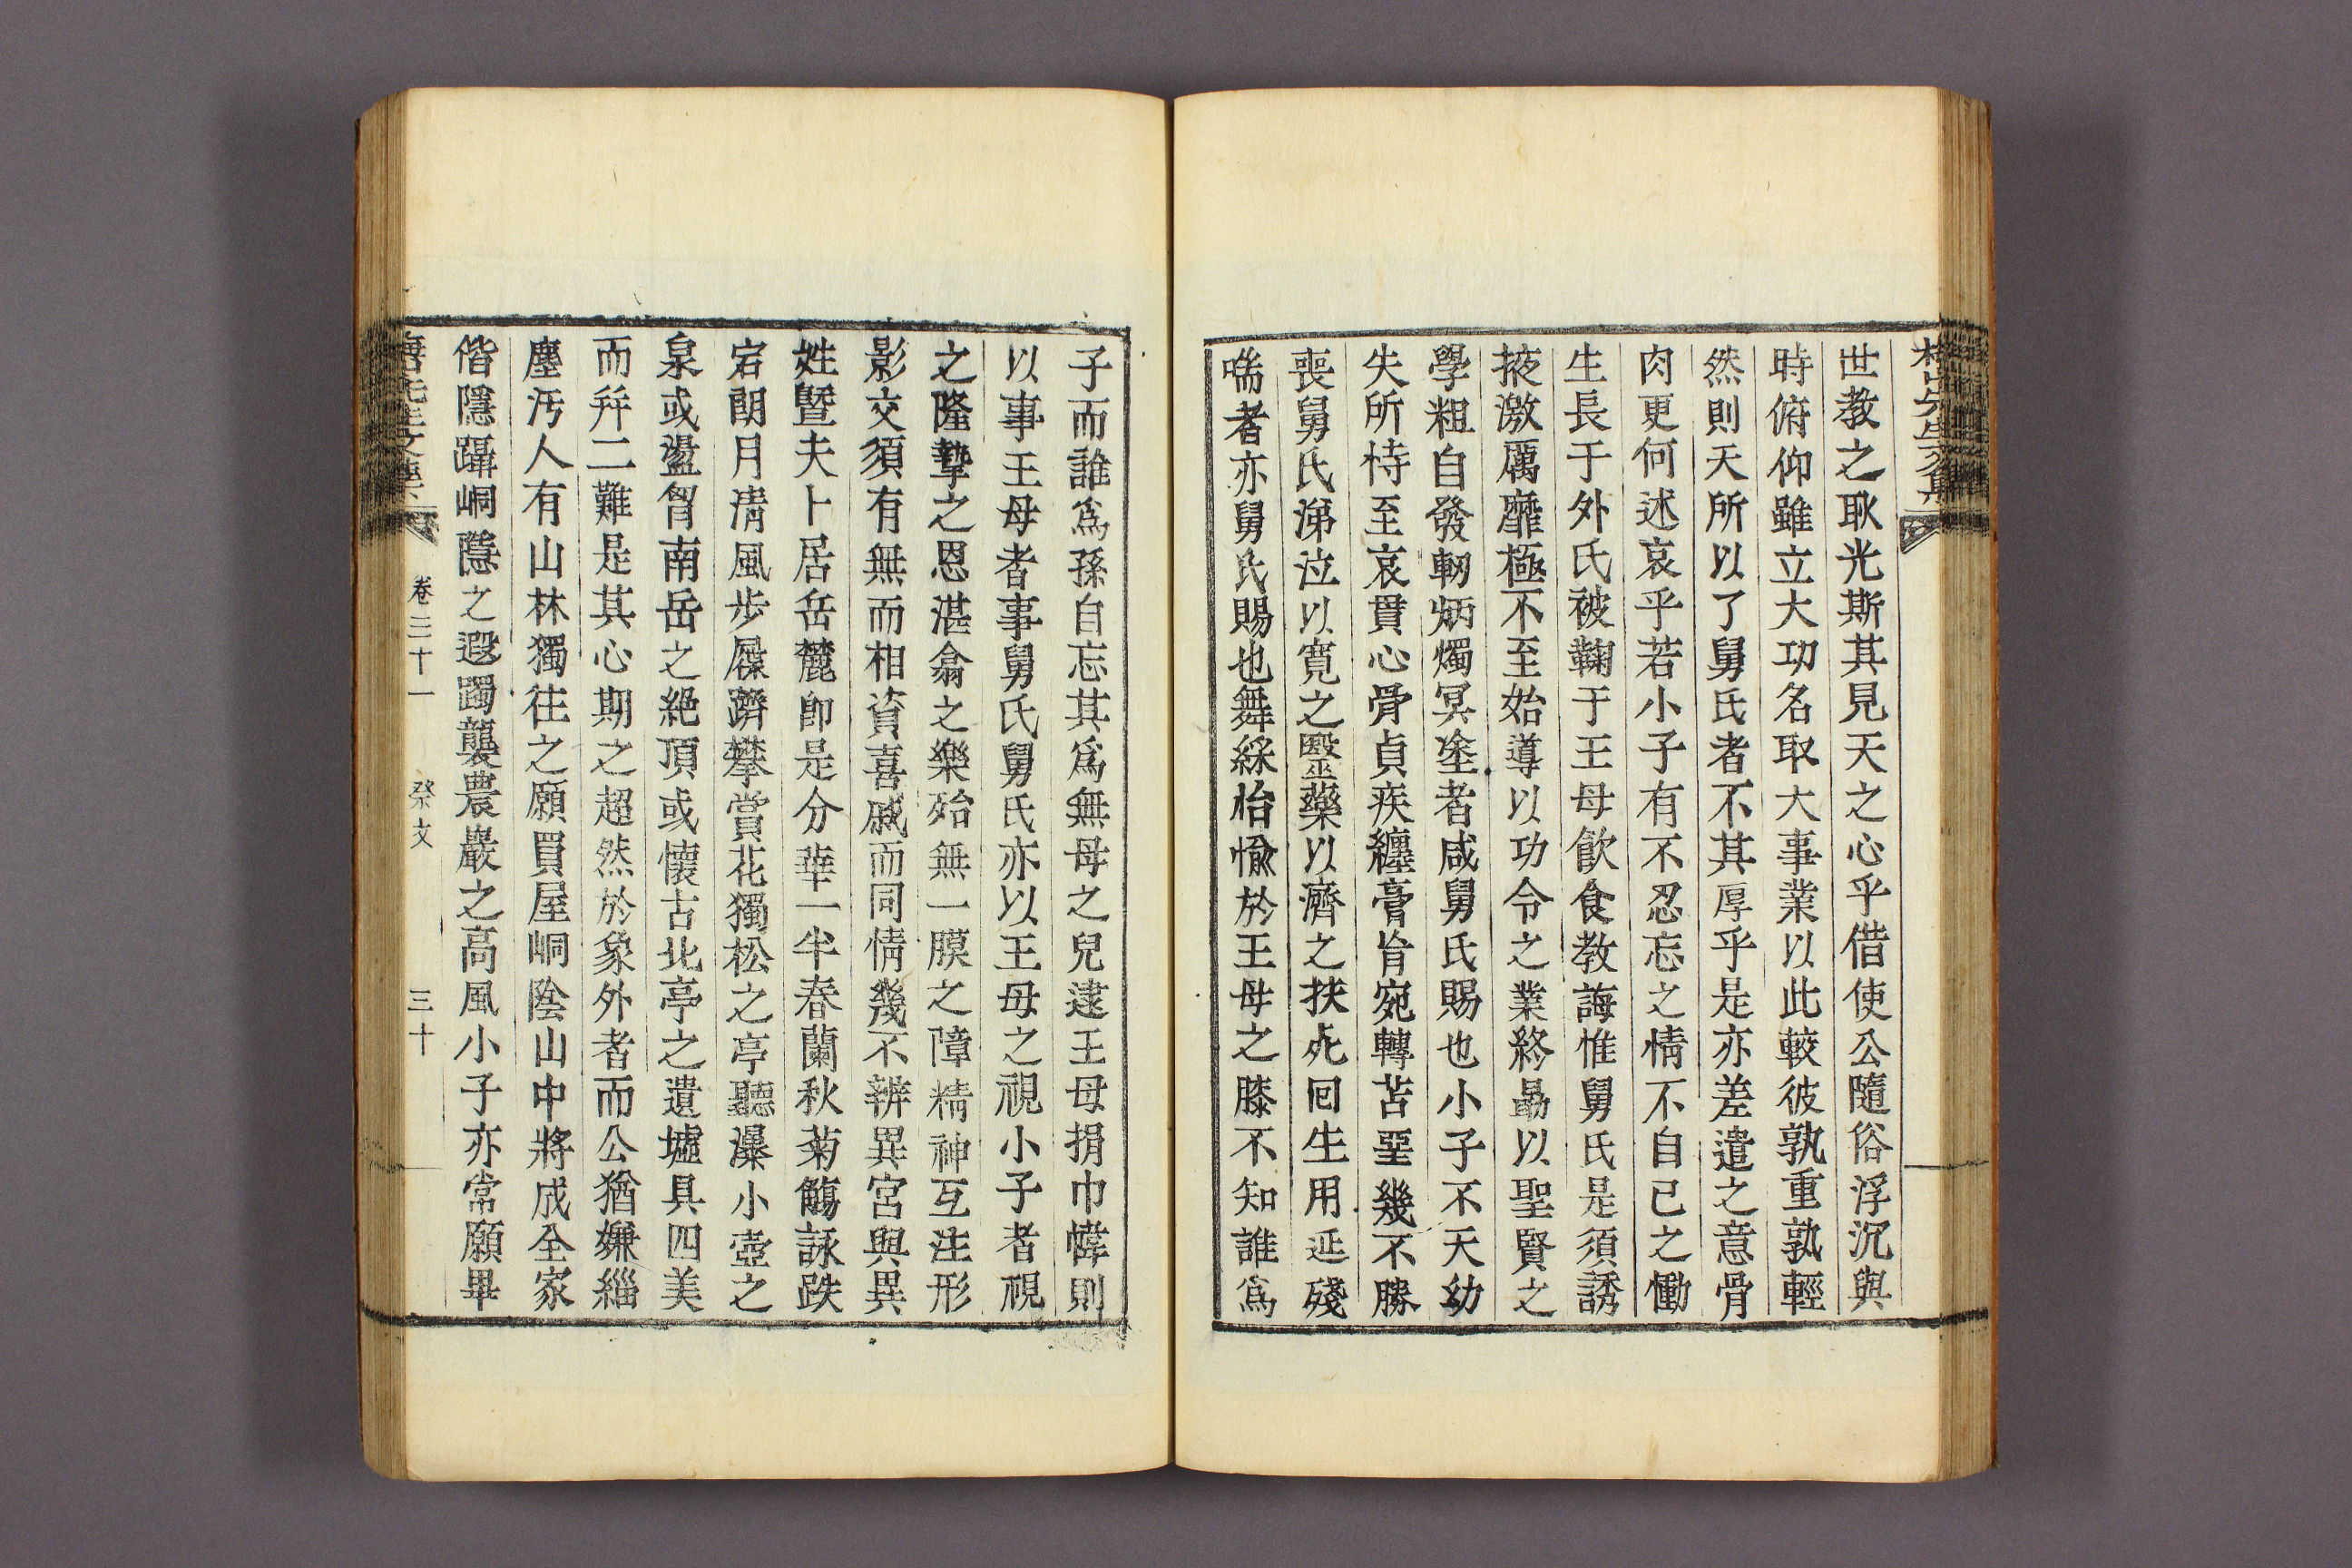 世教之耿光斯其見天之心乎借使公隨俗浮沉與
時俯仰雖立大功名取大事業以此較彼孰重孰輕
然則天所以了舅氏者不其厚乎是亦差遣之意骨
肉更何述哀乎若小子有不忍忘之情不自已之慟
生長于外氏被鞠于王母飮食教誨惟舅氏是須誘
掖激厲靡極不至始導以功令之業終勗以聖賢之
學粗自發軔炳燭冥塗者咸舅氏賜也小子不天幼
失所恃至哀貫心骨貞疾纏膏肓宛轉苫堊幾不勝
喪舅氏涕泣以寬之毉藥以濟之扶死回生用延殘
喘者亦舅氏賜也舞綵怡愉於王母之膝不知誰爲
子而誰爲孫自忘其爲無母之兒逮王母捐巾幃則
以事王母者事舅氏舅氏亦以王母之視小子者視
之隆摯之恩湛翕之樂殆無一膜之障精神互注形
影交須有無而相資喜戚而同情幾不辨異宮與異
姓曁夫卜居岳麓卽是分華一半春蘭秋菊觴詠跌
宕朗月淸風步屧躋攀賞花獨松之亭聽瀑小壺之
泉或盪胷南岳之絶頂或懷古北亭之遺墟具四美
而幷二難是其心期之超然於象外者而公猶嫌緇
塵汚人有山林獨往之願買屋峒陰山中將成全家
偕隱躡峒隱之遐躅襲農巖之高風小子亦常願畢
卷三十一 祭文 三十